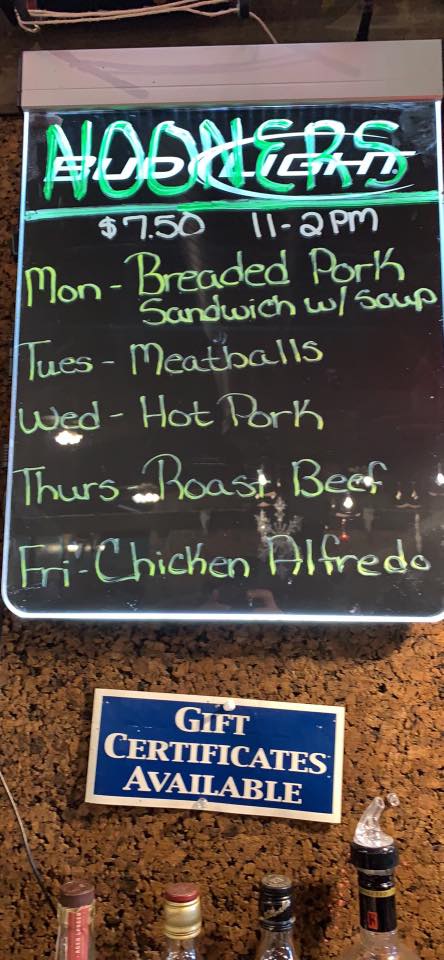 NOONERS
BUD LIGHT
$7.50 11-2PM
Mon - Breaded Pork
Sandwich w/ Soup
Tues - Meatballs
Wed - Hot Pork
Thurs - Roast Beef
Fri - Chicken Alfredo
GIFT
CERTIFICATES
AVAILABLE